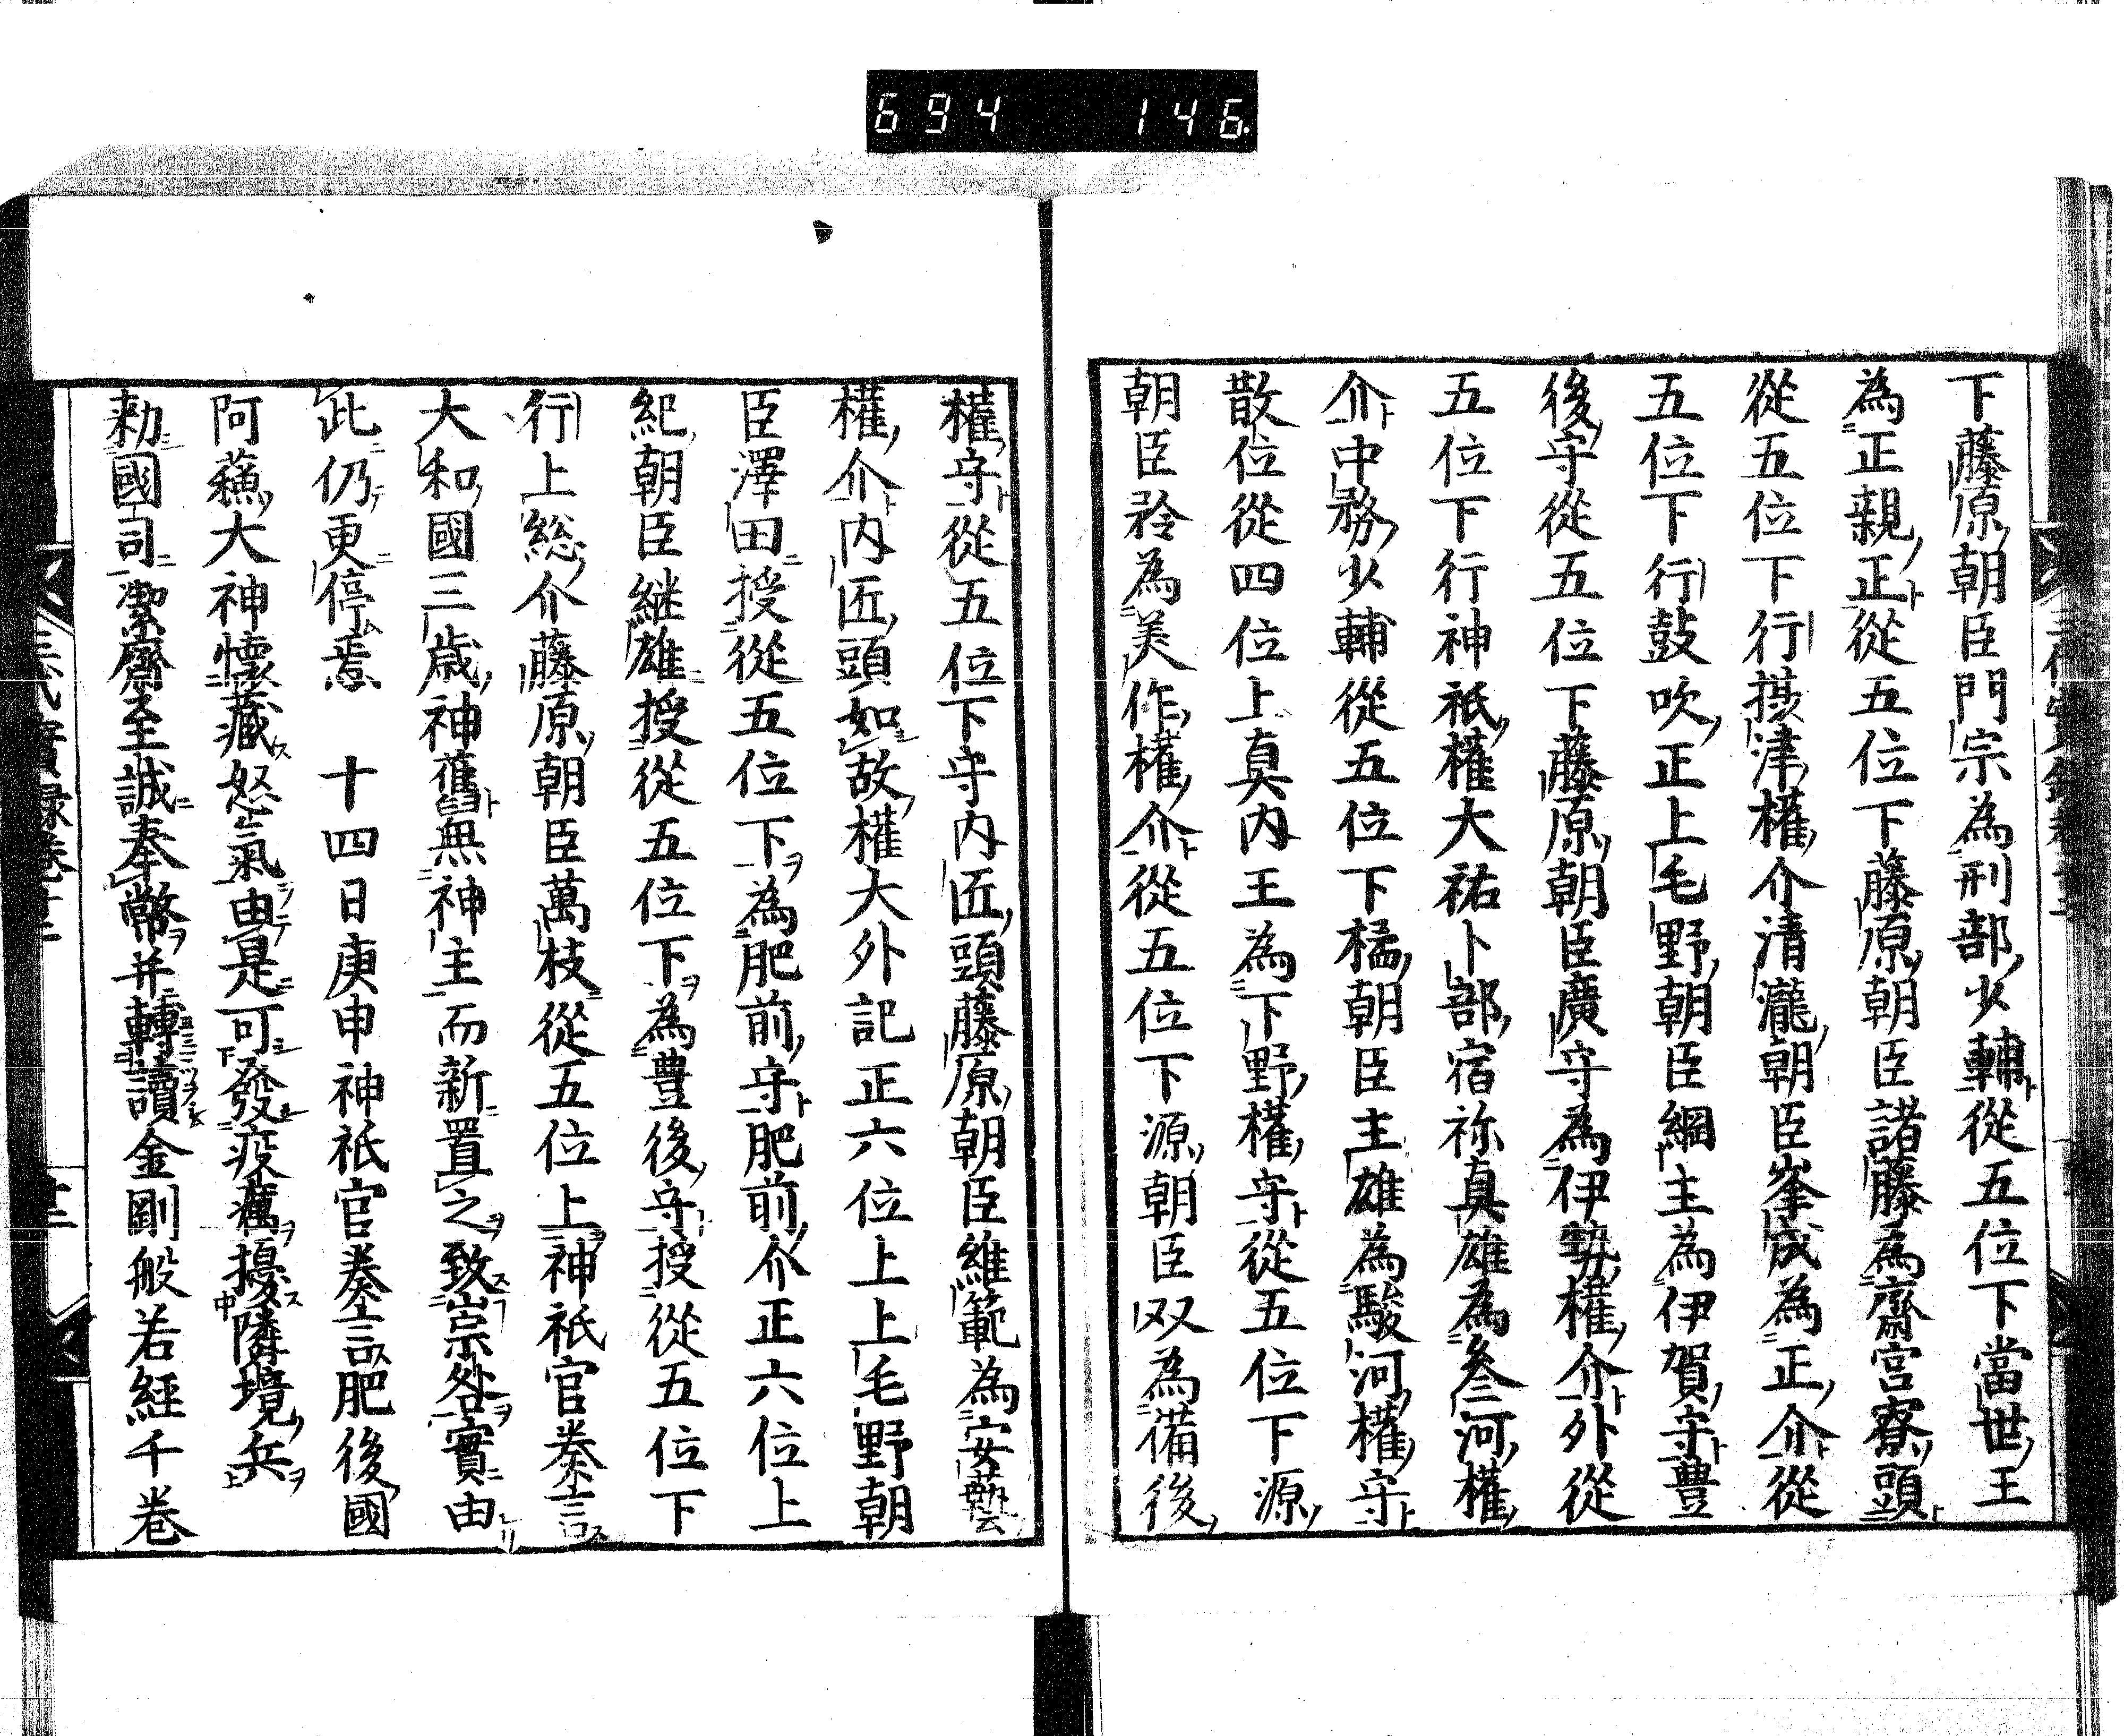 694 146
下藤原朝臣門宗為刑部少輔從五位下當世王
為正親正從五位下藤原朝臣諸藤為齋宮寮頭
從五位下行摂津權介清瀧朝臣峯成為正介從
五位下行鼓吹正上毛野朝臣綱主為伊賀守豊
後守從五位下藤原朝臣廣守為伊勢權介外從
五位下行神祇權大祐卜部宿祢真雄為叅河權
介中務少輔從五位下橘朝臣主雄為駿河權守
散位從四位上真内王為下野權守從五位下源
朝臣矜為美作權介從五位下源朝臣双為備後
權守從五位下守内匠頭藤原朝臣維範為安藝
權介内匠頭如故權大外記正六位上上毛野朝
臣澤田授從五位下為肥前守肥前介正六位上
紀朝臣継雄授從五位下為豊後守授從五位下
行上総介藤原朝臣萬枝從五位上神祇官奏言
大和國三歳神舊無神主而新置之致崇咎實由
此仍更停焉　十四日庚申神祇官奏言肥後國
阿蘓大神懐藏怒氣由是可發疫癘擾隣境兵
勅國司潔齋至誠奉幣并轉讀金剛般若経千巻